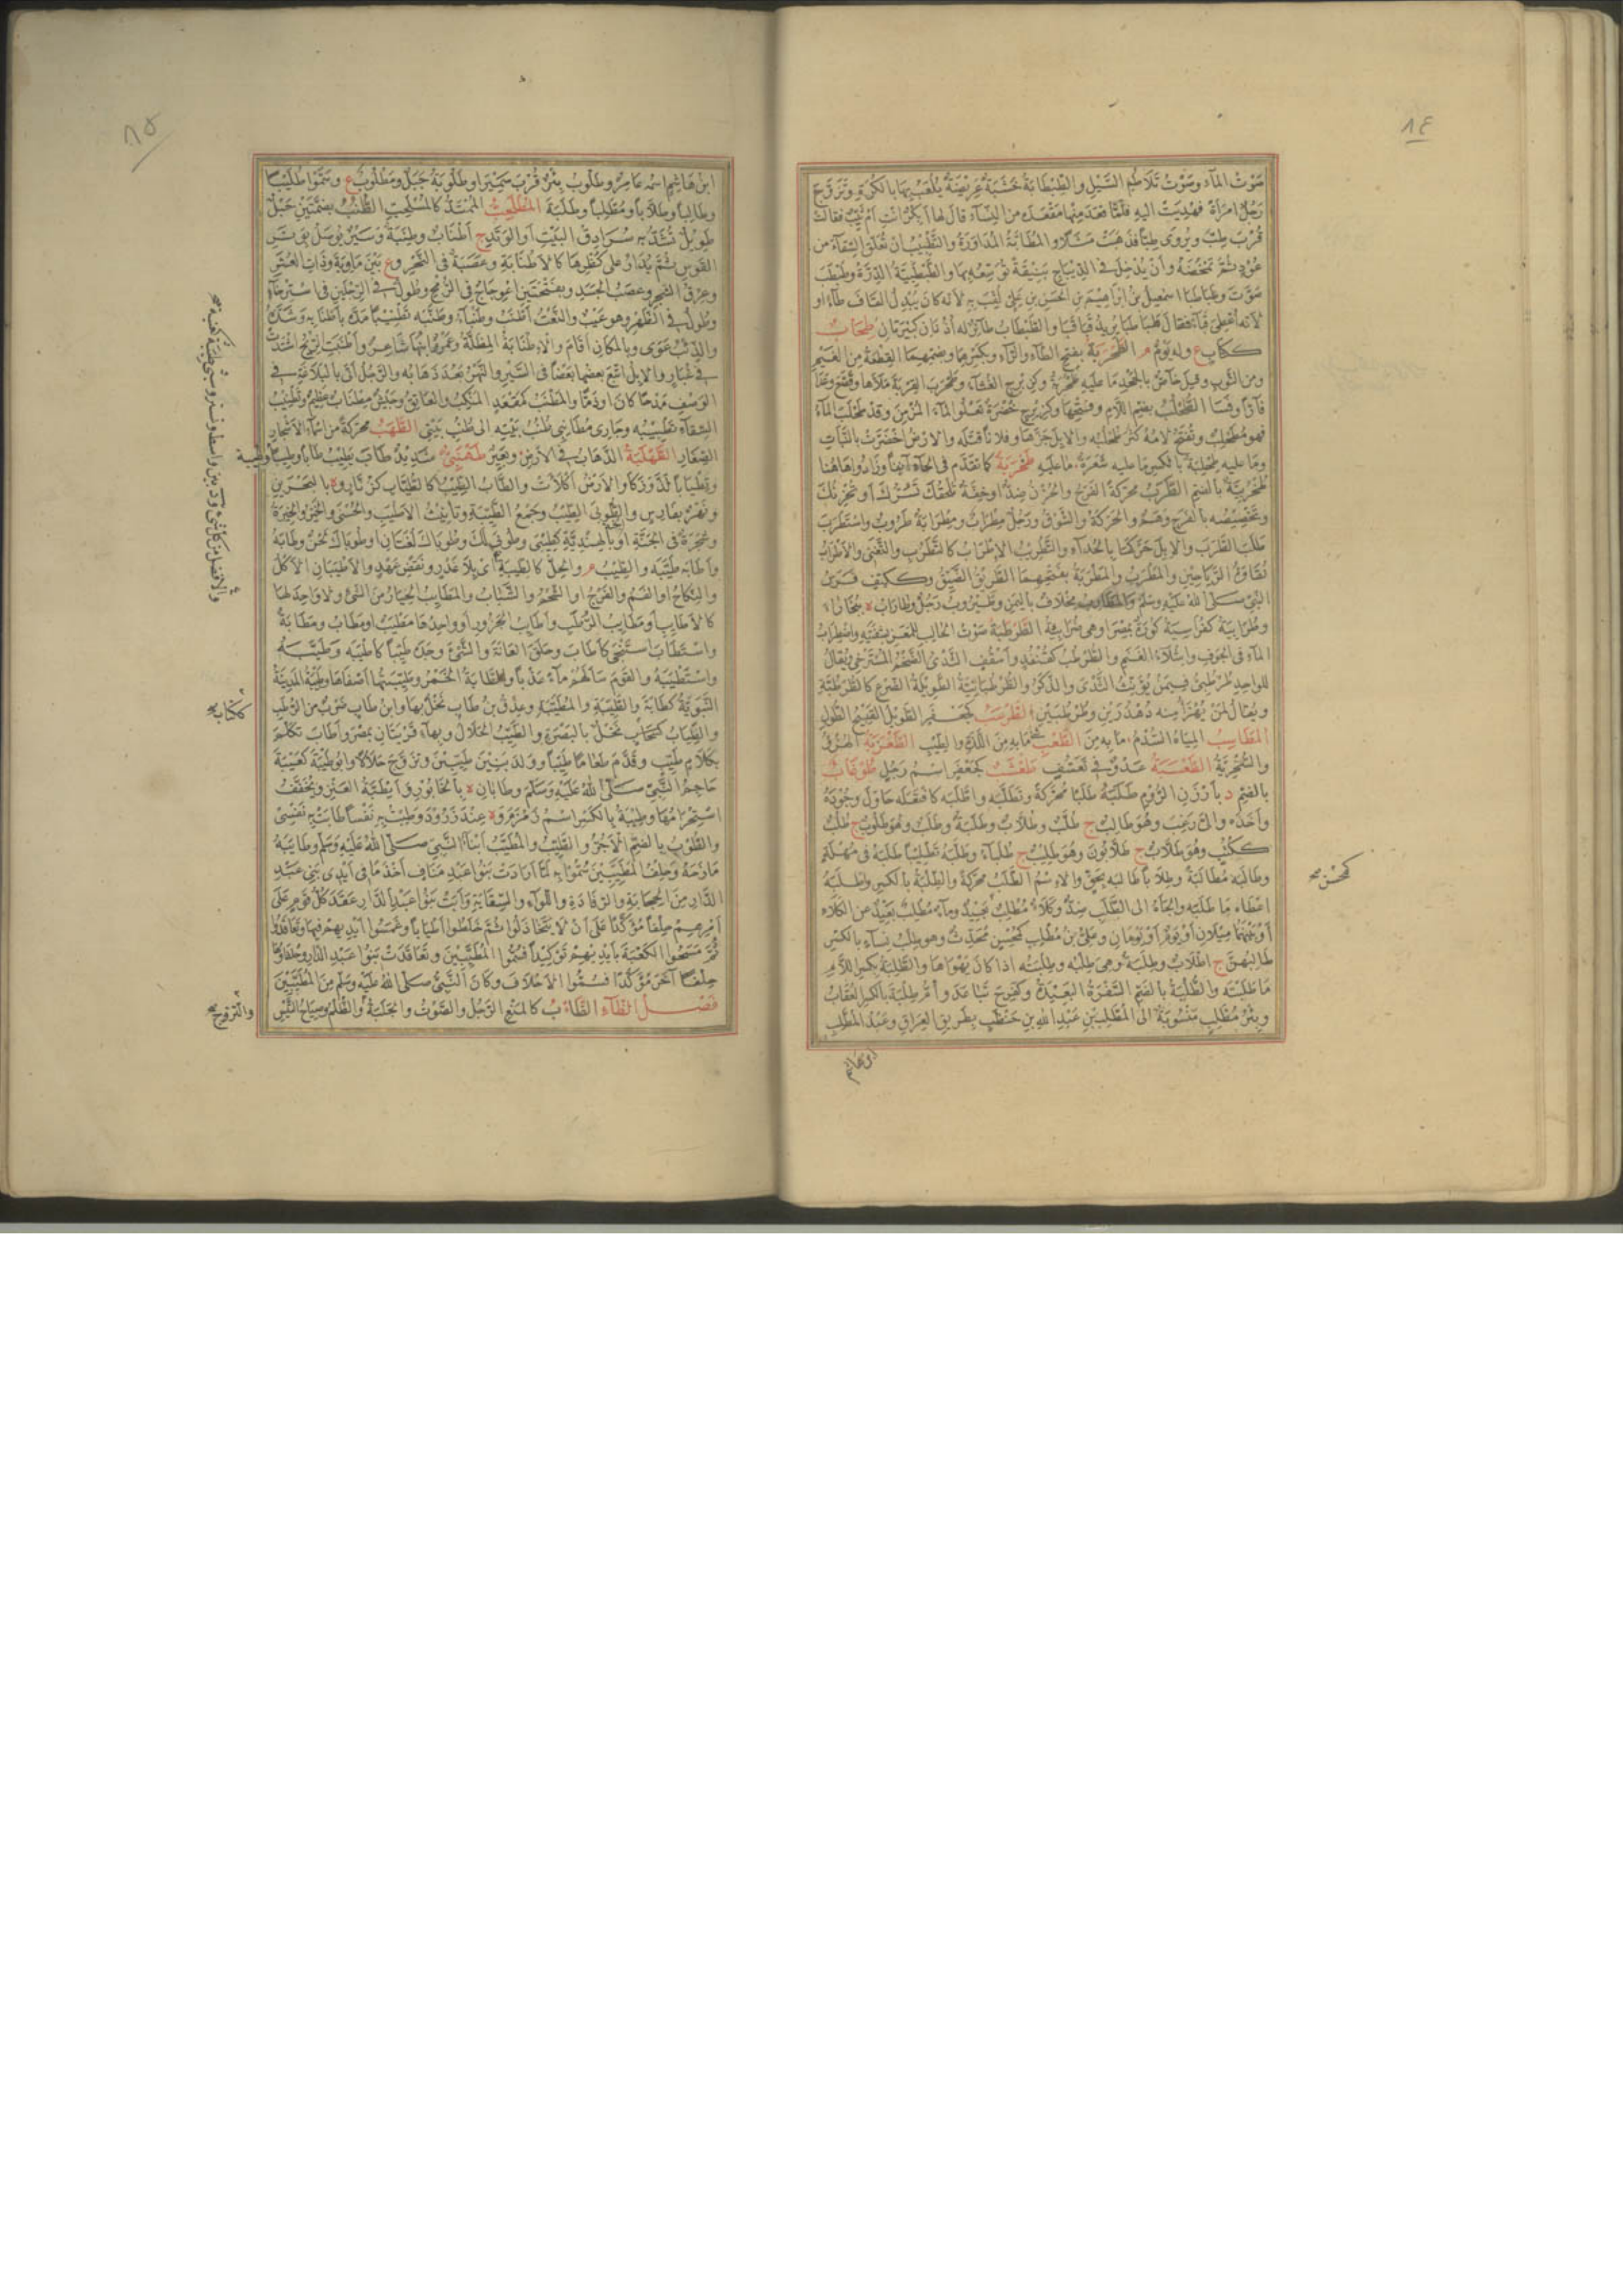 ٨٤
صَوْتُ المآء وصَوْتُ تَلاطُمِ السَّيْلِ والطَّبْطَابَةُ خَشَبَةٌ عَرِيضَةٌ يُلْعَبُ بِهَا بالكُرَةِ وتَزَوَّجَ
رَجُلٌ امرَأةً فهُدِيَتْ اليهِ فلَمَّا قعَدَ مِنْهَا مَقْعَدَه من النِّسآءِ قالَ لها أبِكْرٌ انْتِ أمْ ثَيِّبٌ فقالَتْ
قُرْبَ طِبٌّ ويُرْوَى طِبًّا فذَهَبَتْ مَثَلًا والمُطَابَّةُ المُدَاوَرَةُ والتَّطْبِيبُ انْ تُعَلِّقَ السِّقَآءَ من
عُوْدٍ ثمَّ تَمْخُضَهُ وأنْ يُدْخِلَ في الدِّيبَاجِ بَنِيقَةً تُوَسِّعُه بِهَا والطَّبْطَبِيَّةُ الدِّرَّةُ وطَبْطَبَ
صَوَّتَ وطَبَاطَبَا اسمعيلُ بنُ إبْرَاهِيمَ بنِ الحَسَنِ بنِ عَلِيٍّ لُقِّبَ بِهِ لأنه كان يُبْدِلُ القَافَ طآءً أو
لأنه أُعْطِيَ قَبآءً فقالَ طَبَا طَبَا يُرِيدُ قَبَا قَبَا والطَّبْطَابُ طآئِرٌ له أُذُنَانِ كَبِيرَتَانِ طِحَابٌ
ككِتابٍ ع وله يَوْمٌ م الطِّحْرَبَةُ بفتحِ الطآءِ والرَّآءِ وبكَسْرِهِمَا وبضمِّهِمَا القِطْعَةُ مِنَ الغَيْمِ
ومن الثَّوبِ وقيلَ خآصٌّ بالجَحْدِ مَا علَيهِ طُحْرُبَةٌ وكزِبْرِجٍ الغُثآءُ وطَحْرَبَ القِرْبَةَ مَلأهَا وقَصَّعَ وعَدَا
فآرًّا وفَسَا الطُّحْلُبُ بضَمِّ اللَّامِ وفَتْحِهَا وكزِبْرِجٍ خُضْرَةٌ تَعْلُو المآءَ المُزْمِنَ وقد طَحْلَبَ المآءُ
فهو مُطَحْلِبٌ وتُفْتَحُ لامُه كَثُرَ طُحْلُبُه والإبِلَ جَزَّهَا وفلانًا قَتَلَه والأرْضُ اخْضَرَّتْ بالنَّبَاتِ
وما عليه طِحْلِبَةٌ بالكسرِ مَا عليه شَعَرَةٌ مَا علَيهِ طَخْرَبَةٌ كما تقَدَّمَ في الحآءِ آنِفًا وزَادُوا هَاهُنا
طُخْرُبِيَّةٌ بالضَمِّ الطَّرَبُ محرّكةً الفَرَحُ والحُزْنُ ضِدٌّ أو خِفَّةٌ تَلْحَقُكَ تَسُرُّكَ أو تُحْزِنُكَ
وتَخْصِيصُه بالفَرَحِ وَهَمٌ والحَرَكَةُ والشَّوْقُ ورَجُلٌ مِطْرَابٌ ومِطْرَابَةٌ طَرُوبٌ واسْتَطْرَبَ
طَلَبَ الطَّرَبَ والإبِلَ حَرَّكَهَا بالحُدآءِ والتَّطْرِيبُ الإطْرَابُ كالتَّطَرُّبِ والتَّغَنِّي والأطْرَابُ
نُقَاوَةُ الرَّيَاحِينِ والمَطْرَبُ والمَطْرَبَةُ بفتحِهِمَا الطَّرِيقُ الضَّيِّقُ وككَتِفٍ فَرَسُ
النَّبِيِّ صَلَّى اللهُ علَيْهِ وسَلَّمَ والمَطَارِبُ مِخْلافٌ باليَمَنِ وطَيْرُوبٌ رَجُلٌ وطَارَابُ ة ببُخَارَا
وطُرَابِيَةُ كقُرَاسِيَةٍ كُورَةٌ بمِصْرَ أو هي ضُرَابِيَةُ الطَّرْطَبَةُ صَوْتُ الحَالِبِ للمَعَزِ بشَفَتَيْهِ واضْطِرَابُ
المآءِ في الجَوفِ وامْتِلآءُ الغَنَمِ والطُّرْطُبُ كقُنْفُذٍ وأُسْقُفٍّ الثَّدْيُ الضَّخْمُ المُسْتَرْخِي ويُقالُ
للواحِدِ طُرْطُبَى فيمَنْ يُؤَنِّثُ الثَّدْيَ والذَّكَرُ والطُّرْطُبَانِيَّةُ الطَّوِيلَةُ الضَّرْعِ كالطُّرْطُبَّةِ
ويُقالُ لمَنْ يُهْزَأُ منه دُهْدُرَّيْنِ وطُرْطُبَّيْنِ الطَّرْعَبُ كجَعْفَرٍ الطَّوِيلُ القَبِيحُ الطُّولِ
المَطَاسِبُ المِيَاهُ السُّدْمُ مَا بِهِ مِنَ الطَّعْبِ مَا بِهِ مِنَ اللَّذَّةِ والطِّيبِ الطَّعْزَبَةُ الهُزْءُ
والسُّخْرِيَّةُ الطَّعْسَبَةُ عَدْوٌ في تَعَسُّفٍ طَعْشَبٌ كجَعْفَرٍ اسْمُ رَجُلٍ طُوْغَابُ
بالضمِّ د بأَرْزَنِ الرُّومِ طَلَبَهُ طَلَبًا مُحَرَّكةً وتَطَلَّبَه واطَّلَبَه كافْتَعَلَه حَاوَلَ وجُودَهُ
وأخْذَه وإلَيَّ رَغِبَ وهُوَ طَالِبٌ ج طُلَّبٌ وطُلَّابٌ وطَلَبَةٌ وطَلَبٌ وهُوَ طَلُوبٌ ج طُلُبٌ
ككُتُبٍ وهُوَ طَلَّابٌ ج طَلَّابُونَ وهُوَ طَلِيبٌ ج طُلَبآءُ وطَلَّبَهُ تَطْلِيبًا طَلَبَهُ في مُهْلَةٍ
وطَالَبَهُ مُطَالَبَةً وطِلابًا طَالَبَه بِحَقٍّ والإسْمُ الطَّلَبُ محرّكةً والطِّلْبَةُ بالكسرِ وأطْلَبَهُ
اعْطَاه مَا طَلَبَه وألْجَأهُ الى الطَّلَبِ ضِدٌّ وكَلأٌ مُطْلِبٌ بَعِيدٌ ومآءٌ مُطْلِبٌ بَعِيدٌ عن الكَلأِ
أوْ بَيْنَهُمَا مِيلانِ أوْ يَوْمٌ أوْ يَوْمَانِ وعَلِيُّ بنُ مُطْلِبٍ كمُحْسِنٍ مُحَدِّثٌ وهو طِلْبُ نِسآءٍ بالكسرِ
طَالِبُهُنَّ ج أطْلابٌ وطِلَبَةٌ وهي طِلْبُه وطِلْبَتُه اذا كانَ يَهْوَاهَا والطَّلِبَةُ بكسرِ اللَّامِ
مَا طَلَبْتَه والطُّلْبَةُ بالضَمِّ السَّفْرَةُ البَعِيدَةُ وكفَرِحَ تَبَاعَدَ وأُمُّ طِلْبَةَ بالكسرِ العُقَابُ
وبِئْرُ مُطَّلِبٍ مَنْسُوبَةٌ الى المُطَّلِبِ بنِ عَبْدِ اللهِ بنِ حَنْطَبٍ بِطَرِيقِ العِرَاقِ وعَبْدُ المُطَّلِبِ
كمحسن صح
٨٥
ابنُ هَاشِمٍ اسْمُه عَامِرٌ وطَلُوبُ بِئْرٌ قُرْبَ سَمِيْرَا وطَلُوبَةُ جَبَلٌ ومَطْلُوبٌ ع وسَمَّوْا طُلَيْبًا
وطَالِبًا وطَلَّابًا ومُطَّلِبًا وطَلَبَةَ المُطْلَعِبُّ المُمْتَدُّ كالمُسْلَعِبِّ الطُّنُبُ بضَمَّتَيْنِ حَبْلٌ
طَوِيلٌ يُشَدُّ بِهِ سُرَادِقُ البَيْتِ أوِ الوَتَدُ ج أطْنَابٌ وطِنَبَةٌ وسَيْرٌ يُوصَلُ بوَتَرِ
القَوْسِ ثُمَّ يُدَارُ على كُظْرِهَا كالإطْنَابَةِ وعَصَبَةٌ في النَّحْرِ وع بَيْنَ مَاوِيَّةَ وذَاتِ العُشَرِ
وعِرْقُ الشَّجَرِ وعَصَبُ الجَسَدِ وبفَتْحَتَيْنِ اعْوِجَاجٌ في الرُّمْحِ وطُولٌ في الرِّجْلَيْنِ في اسْتِرْخآءٍ
وطُولٌ في الظَّهْرِ وهو عَيْبٌ والنَّعْتُ أطْنَبُ وطَنْبآءُ وطَنَّبَه تَطْنِيبًا مَدَّهُ بأطْنَابِهِ وشَدَّهُ
والذِّئْبُ عَوَى وبالمَكَانِ أقَامَ والإطْنَابَةُ المِظَلَّةُ وعَمْرُو ابنُهَا شَاعِرٌ وأطْنَبَتِ الرِّيْحُ اشْتَدَّتْ
في غُبَارٍ والإبِلُ اتَّبَعَ بعضُهَا بعْضًا في السَّيْرِ والنَّهْرُ بَعُدَ ذَهَابُه والرَّجُلُ أتَى بالبَلاغَةِ في
الوَصْفِ مَدْحًا كانَ أو ذَمًّا والمَطْنَبُ كمَقْعَدٍ المَنْكِبُ والعَاتِقُ وجَيْشٌ مِطْنَابٌ عَظِيمٌ وتَطْنِيبُ
السِّقآءِ تَطْبِيبُه وجَارِي مُطَانِبِي طُنُبُ بَيْتِه الى طُنُبِ بَيْتِي الطَّهَبُ محرّكةً من أسْمآءِ الأشْجَارِ
الصِّغَارِ الطَّهْلَبَةُ الذَّهَابُ في الأرْضِ وبَعِيرٌ طَهَنْبِيٌّ شَدِيدٌ طَابَ يَطِيبُ طَابًا وطِيبًا وطِيبَةً
وتَطْيَابًا لَذَّ وزَكَا والأرْضُ أكْلأَتْ والطَّابُ الطَّيِّبُ كالطُّيَّابِ كزُنَّارٍ وة بالبَحْرَيْنِ
ونَهْرٌ بفَارِسَ والطُّوبَى الطِّيبُ وجَمْعُ الطَّيِّبَةِ وتَأنِيثُ الأطْيَبِ والحُسْنَى والخَيْرُ والخِيَرَةُ
وشَجَرَةٌ في الجَنَّةِ أو الجَنَّةُ بالهِنْدِيَّةِ كطِيبَى وطُوبَى لكَ وطُوبَاكَ لُغَتَانِ أو طُوبَاكَ لَحْنٌ وطَابَهُ
وأطَابَه طَيَّبَه والطِّيبُ م والحِلُّ كالطِّيبَةِ أي بِلا غَدْرٍ ونَقْضِ عَهْدٍ والأطْيَبَانِ الأكْلُ
والنِّكَاحُ أو الفَمُ والفَرْجُ أو الشَّحْمُ والشَّبَابُ والمَطَايِبُ الخِيَارُ مِنَ الشَّيْءِ ولا وَاحِدَ لهَا
كالأطَايِبِ أو مَطَايِبُ الرُّطَبِ وأطَايِبُ الجَزُورِ أو واحِدُهَا مَطْيَبٌ أو مَطَابٌ ومَطَابَةٌ
واسْتَطَابَ اسْتَنْجَى كأطَابَ وحَلَقَ العَانَةَ والشَّيْءَ وجَدَه طَيِّبًا كأطْيَبَه وطَيَّبَه
واسْتَطْيَبَهُ والقَوْمَ سَألَهُمْ مآءً عَذْبًا والطَّابَةُ الخَمْرُ وطِيبَتُهَا أصْفَاهَا وطَيْبَةُ المَدِينَةُ
النَّبَوِيَّةُ كطَابَةَ والطَّيِّبَةِ والمُطَيَّبَةِ وعِذْقُ بنُ طَابٍ نَخْلٌ بِهَا وابنُ طَابٍ ضَرْبٌ من الرُّطَبِ
والطِّيَابُ كسَحَابٍ نَخْلٌ بالبَصْرَةِ والطَّيِّبُ الحَلالُ وبِهآءٍ قَرْيَتَانِ بمِصْرَ وأطَابَ تكَلَّمَ
بكَلامٍ طَيِّبٍ وقَدَّمَ طَعَامًا طَيِّبًا ووَلَدَ بَنِينَ طَيِّبِينَ وتَزَوَّجَ حَلالًا وأبُو طَيْبَةَ كعَيْبَةَ
حَاجِمُ النَّبِيِّ صَلَّى اللهُ عَلَيْهِ وَسَلَّمَ وطَابَانِ ة بالخَابُورِ وأيْطَبَةُ العَنْزِ ويُخَفَّفُ
اسْتِحْرَامُهَا وطِيبَةُ بالكسْرِ اسْمُ زَمْزَمَ وة عِنْدَ زَرُودَ وطِبْتُ بِهِ نَفْسًا طَابَتْ بِهِ نَفْسِي
والطُّوبُ بالضَمِّ الآجُرُّ والطَّيِّبُ والمُطَيَّبُ ابْنَا النَّبِيِّ صَلَّى اللهُ عَلَيْهِ وَسَلَّمَ وطَايَبَهُ
مَازَحَهُ وحِلْفُ المُطَيَّبِينَ سُمُّوا بِهِ لَمَّا أرَادَتْ بَنُو عَبْدِ مَنَافٍ أخْذَ مَا في أيْدِي بَنِي عَبْدِ
الدَّارِ مِنَ الحِجَابَةِ والرِّفَادَةِ واللِّوآءِ والسِّقَايَةِ وأبَتْ بَنُو عَبْدِ الدَّارِ عَقَدَ كُلُّ قَوْمٍ عَلَى
أمْرِهِمْ حِلْفًا مُؤَكَّدًا عَلَى أنْ لا يَتَخَاذَلُوا ثُمَّ خَلَطُوا أطْيَابًا وغَمَسُوا أيْدِيَهُمْ فِيهَا وتَعَاقَدُوا
ثُمَّ مَسَحُوا الكَعْبَةَ بأيْدِيهِمْ تَوْكِيدًا فسُمُّوا المُطَيَّبِينَ وتَعَاقَدَتْ بَنُو عَبْدِ الدَّارِ وحُلَفَاؤُهَا
حِلْفًا آخَرَ مُؤَكَّدًا فسُمُّوا الأحْلافَ وكَانَ النَّبِيُّ صَلَّى اللهُ عَلَيْهِ وسَلَّمَ مِنَ المُطَيَّبِينَ
فَصْلُ الظَّآءِ الظَّأْبُ كالمَنْعِ الزَّجَلُ والصَّوْتُ والجَلَبَةُ والظُّلْمُ وصِيَاحُ التَّيْسِ
ككتاب صح
والتزوج صح